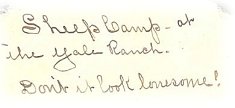 Sheep Camp - at
the Yale Ranch.
Don't it look lonesome!